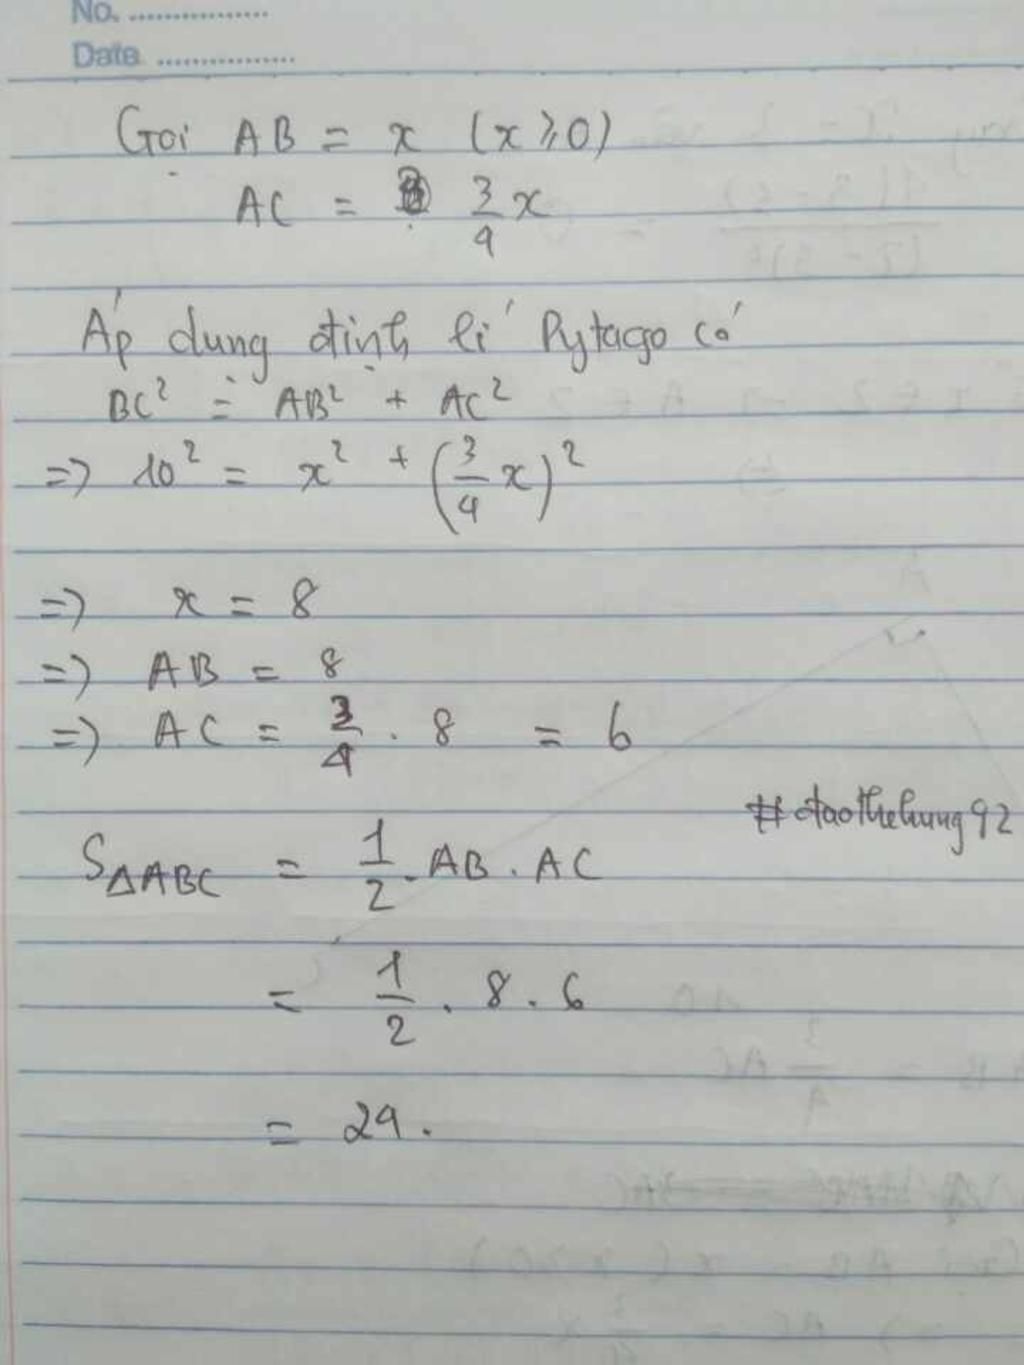 No. ................
Date ................
Gọi AB = x (x ⩾ 0)
AC = 3/4 x
Áp dụng định lí Pytago có
BC² = AB² + AC²
=> 10² = x² + (3/4 x)²
=> x = 8
=> AB = 8
=> AC = 3/4 . 8 = 6
#daothehung92
S△ABC = 1/2 . AB . AC
= 1/2 . 8 . 6
= 24.